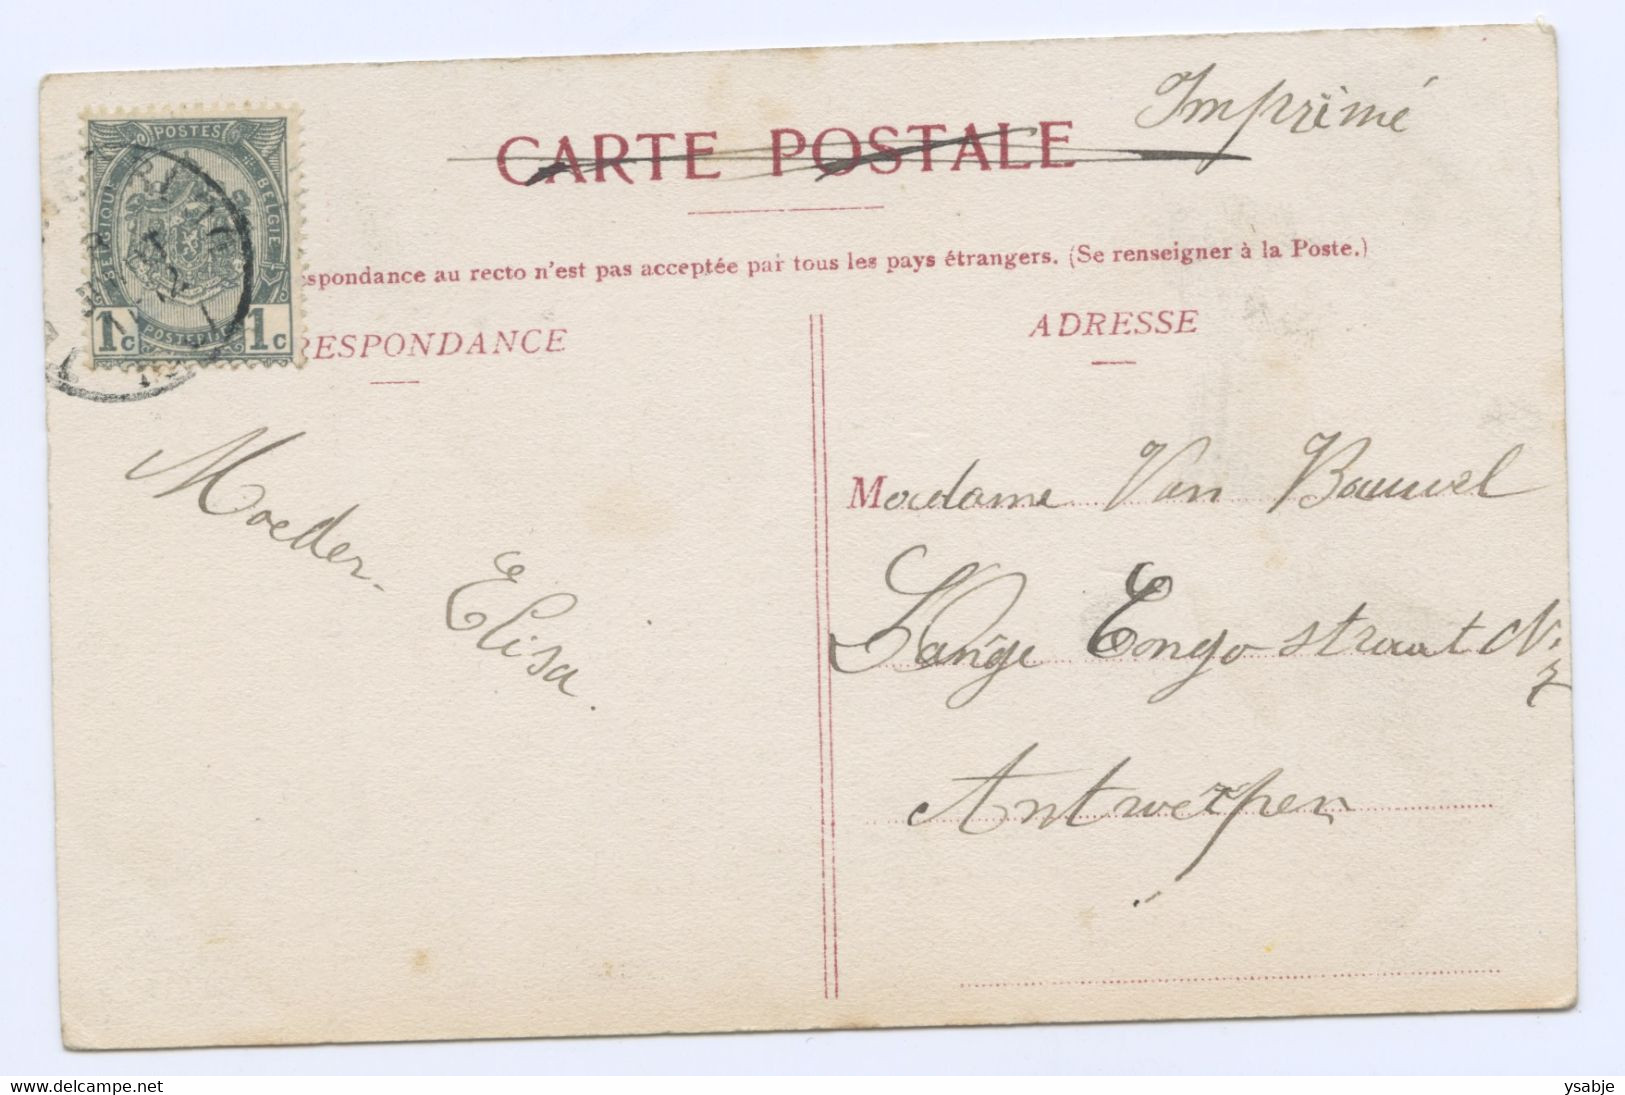 Imprimé
CARTE POSTALE
spondance au recto n'est pas acceptée par tous les pays étrangers. (Se renseigner à la Poste.)
POSTES
BELGIQUE
BELGIE
1c
POSTERIJEN
1c
RESPONDANCE
ADRESSE
Moeder
Elisa.
Madame Van Bauwel
Lange
straat N.
Antwerpen
delcampe.net
ysabje